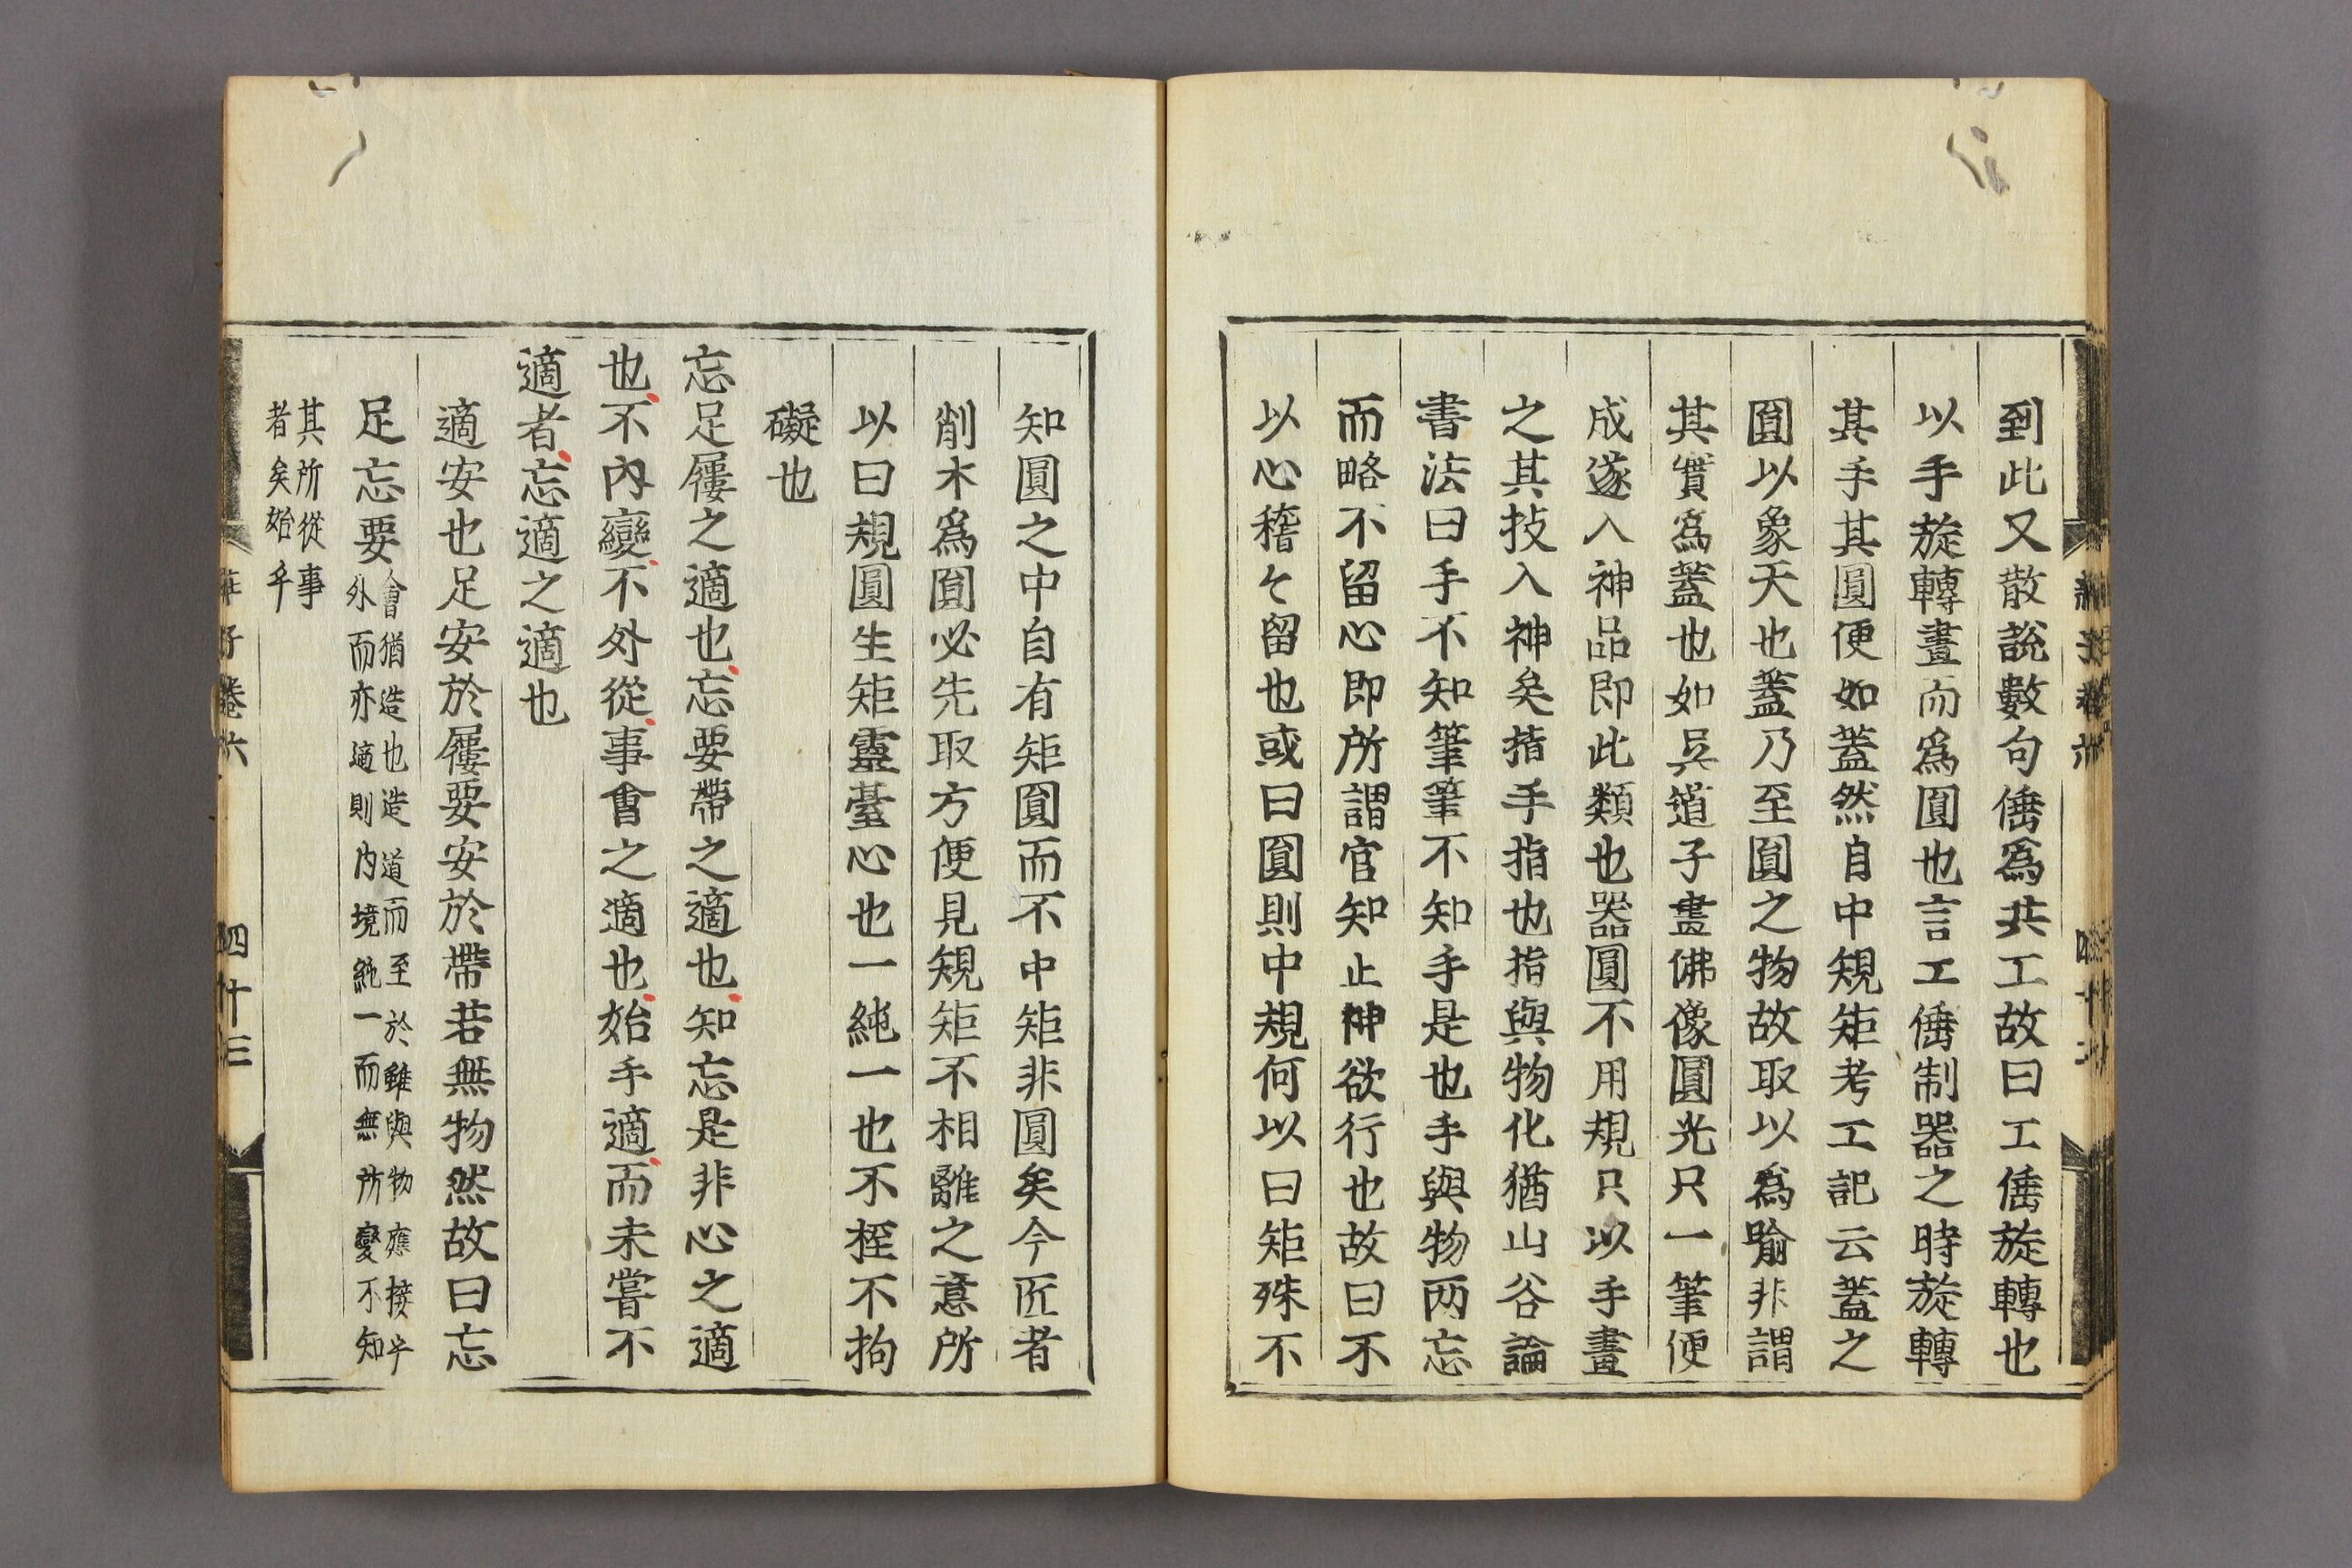 到此又散說數句倕爲共工故曰工倕旋轉也
以手旋轉畫而爲圓也言工倕制器之時旋轉
其手其圓便如蓋然自中規矩考工記云蓋之
圓以象天也蓋乃至圓之物故取以爲喻非謂
其實爲蓋也如吳道子畫佛像圓光只一筆便
成遂入神品即此類也器圓不用規只以手畫
之其技入神矣指手指也指與物化猶山谷論
書法曰手不知筆筆不知手是也手與物两忘
而略不留心即所謂官知止神欲行也故曰不
以心稽々留也或曰圓則中規何以曰矩殊不
知圓之中自有矩圓而不中矩非圓矣今匠者
削木爲圓必先取方便見規矩不相離之意所
以曰規圓生矩靈臺心也一純一也不桎不拘
礙也
忘足屨之適也忘要帶之適也知忘是非心之適
也不內變不外從事會之適也始乎適而未嘗不
適者忘適之適也
適安也足安於屨要安於帶若無物然故曰忘
足忘要會猶造也造道而至於雖與物應接乎
外而亦適則内境純一而無所變不知
其所從事
者矣始乎
莊子卷六 四十三